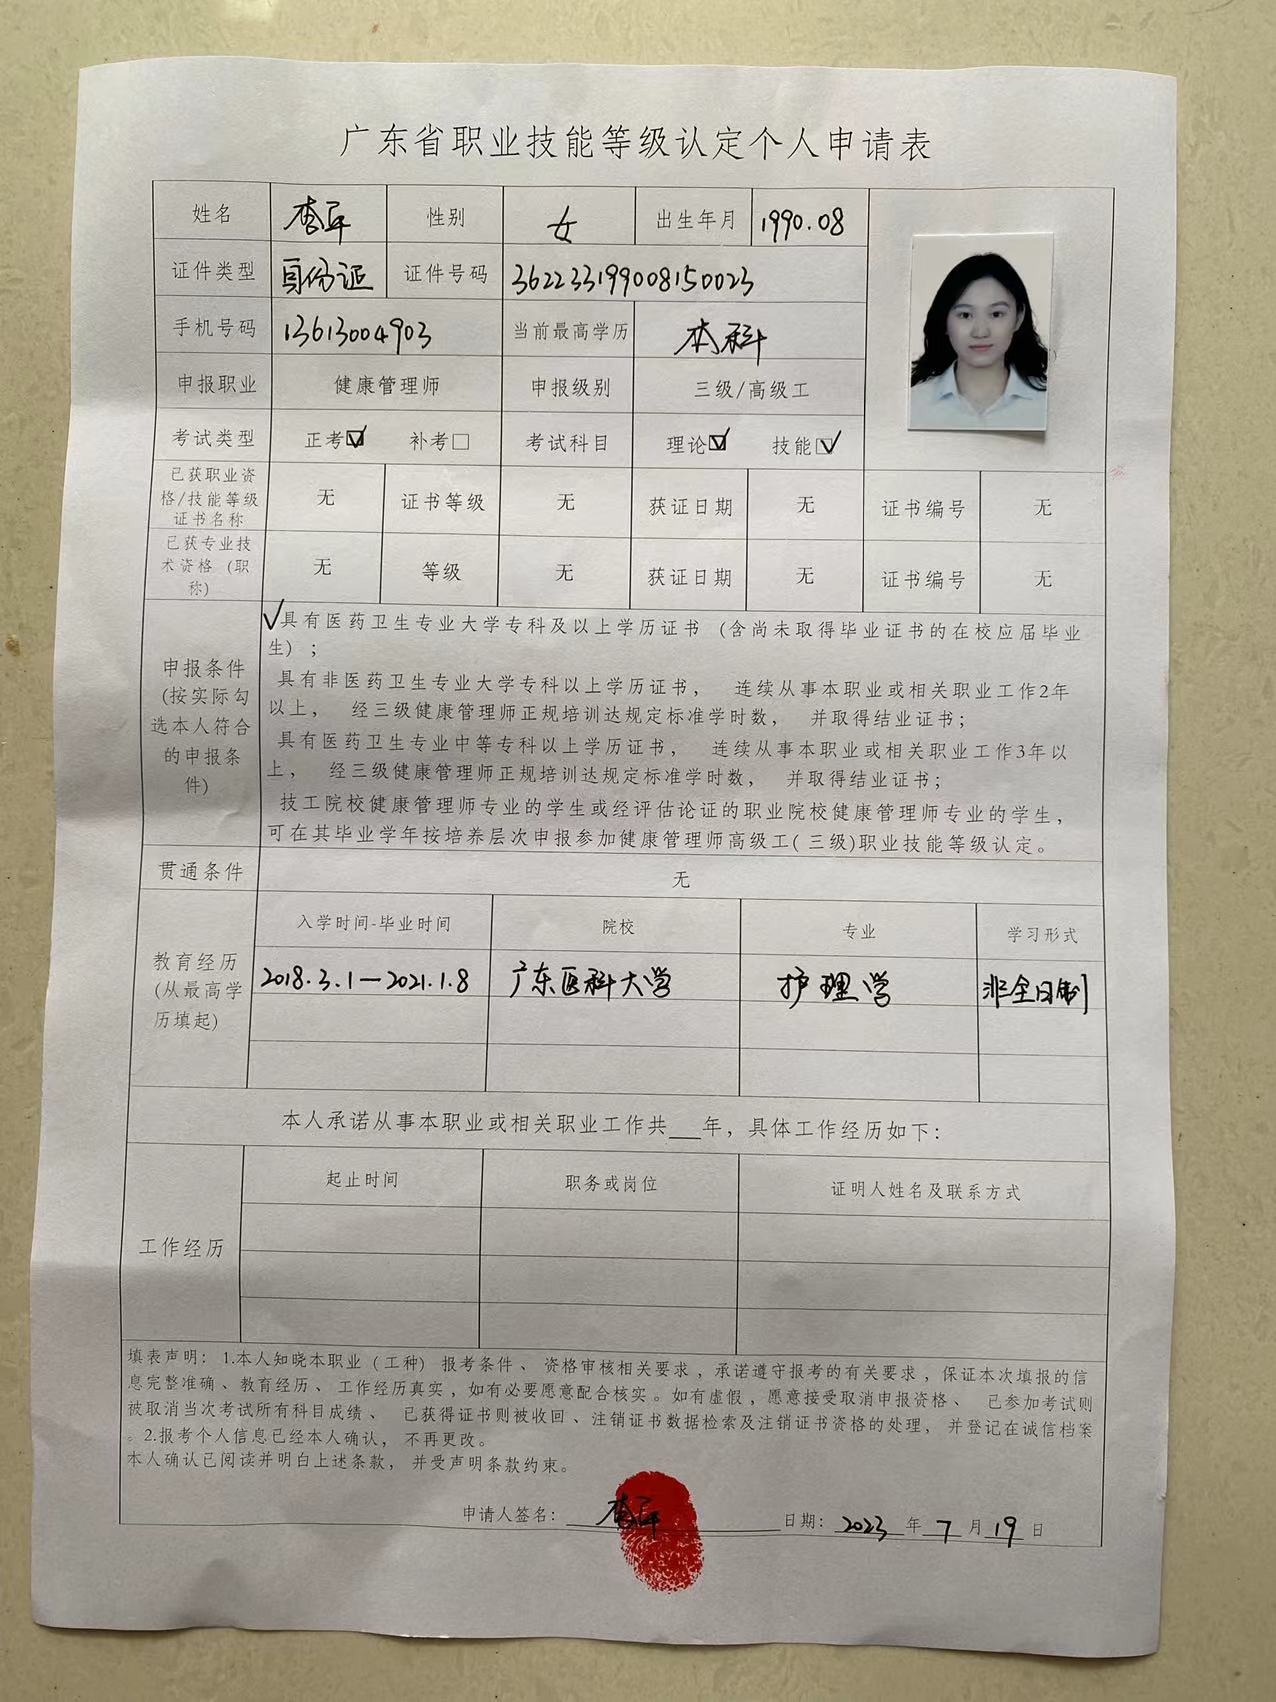 广东省职业技能等级认定个人申请表
姓名 李平 性别 女 出生年月 1990.08
证件类型 身份证 证件号码 362233199008150023
手机号码 13613004903 当前最高学历 本科
申报职业 健康管理师 申报级别 三级/高级工
考试类型 正考☑ 补考□ 考试科目 理论☑ 技能☑
已获职业资格/技能等级证书名称 无 证书等级 无 获证日期 无 证书编号 无
已获专业技术资格（职称） 无 等级 无 获证日期 无 证书编号 无
申报条件（按实际勾选本人符合的申报条件）
√具有医药卫生专业大学专科及以上学历证书（含尚未取得毕业证书的在校应届毕业
生）；
具有非医药卫生专业大学专科以上学历证书， 连续从事本职业或相关职业工作2年
以上， 经三级健康管理师正规培训达规定标准学时数， 并取得结业证书；
具有医药卫生专业中等专科以上学历证书， 连续从事本职业或相关职业工作3年以
上， 经三级健康管理师正规培训达规定标准学时数， 并取得结业证书；
技工院校健康管理师专业的学生或经评估论证的职业院校健康管理师专业的学生，
可在其毕业学年按培养层次申报参加健康管理师高级工(三级)职业技能等级认定。
贯通条件 无
教育经历（从最高学历填起）
入学时间-毕业时间 院校 专业 学习形式
2018.3.1—2021.1.8 广东医科大学 护理学 非全日制
本人承诺从事本职业或相关职业工作共___年，具体工作经历如下：
工作经历 起止时间 职务或岗位 证明人姓名及联系方式
填表声明：1.本人知晓本职业（工种）报考条件、资格审核相关要求，承诺遵守报考的有关要求，保证本次填报的信
息完整准确、教育经历、工作经历真实，如有必要愿意配合核实。如有虚假，愿意接受取消申报资格、 已参加考试则
被取消当次考试所有科目成绩、 已获得证书则被收回、注销证书数据检索及注销证书资格的处理，并登记在诚信档案
。2.报考个人信息已经本人确认，不再更改。
本人确认已阅读并明白上述条款，并受声明条款约束。
申请人签名：李平 日期：2023年7月19日